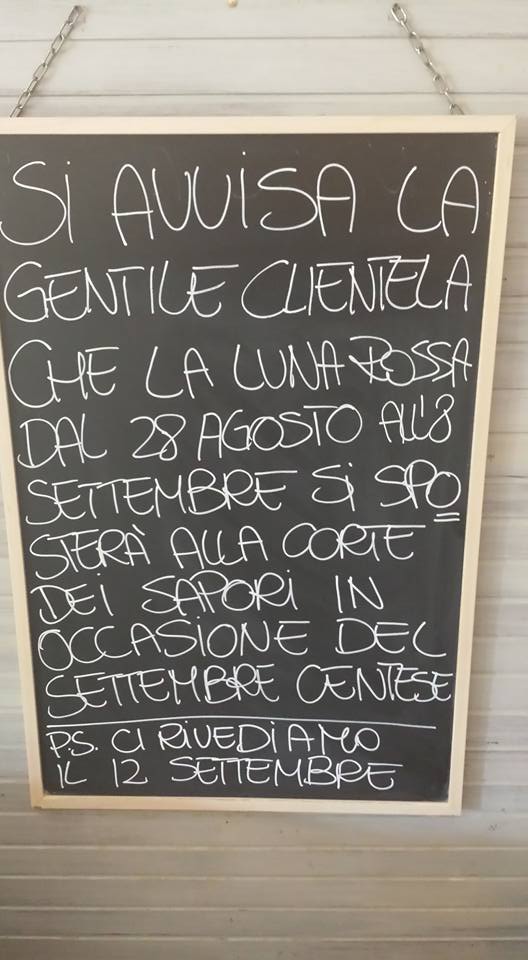 Si AVVISA LA
GENTILE CLIENTELA
CHE LA LUNA ROSSA
DAL 28 AGOSTO ALL'8
SETTEMBRE Si SPO
STERÀ ALLA CORTE
DEI SAPORI IN
OCCASIONE DEL
SETTEMBRE CENTESE
P.S. CI RIVEDIAMO
IL 12 SETTEMBRE